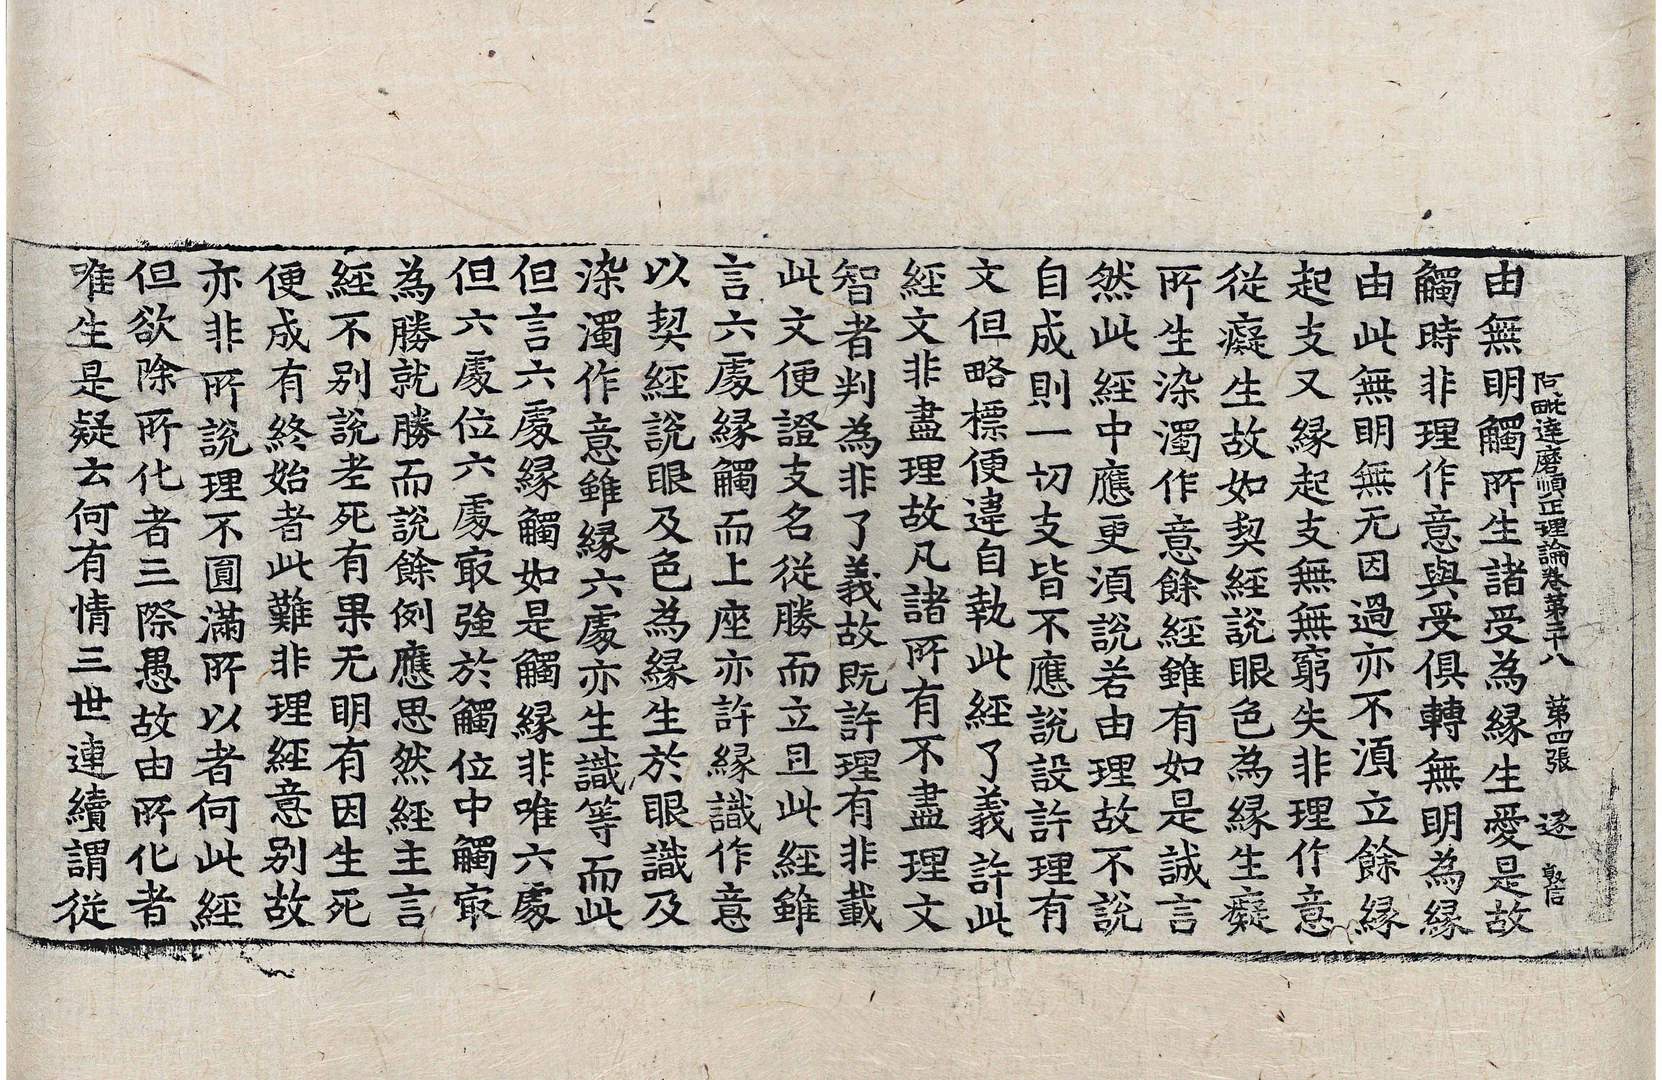 阿毗達磨順正理論卷第二十八 第四張 逐
由無明觸所生諸受為緣生愛是故
觸時非理作意與受俱轉無明為緣
由此無明無无因過亦不湏立餘緣
起支又緣起支無無窮失非理作意
從癡生故如契經說眼色為緣生癡
所生染濁作意餘經雖有如是誠言
然此經中應更湏說若由理故不說
自成則一切支皆不應說設許理有
文但略標便違自執此經了義許此
經文非盡理故凡諸所有不盡理文
智者判為非了義故既許理有非載
此文便證支名從勝而立且此經雖
言六處緣觸而上座亦許緣識作意
以契經說眼及色為緣生於眼識及
染濁作意雖緣六處亦生識等而此
但言六處緣觸如是觸緣非唯六處
但六處位六處㝡強於觸位中觸㝡
為勝就勝而說餘例應思然經主言
經不別說老死有果无明有因生死
便成有終始者此難非理經意別故
亦非所說理不圓滿所以者何此經
但欲除所化者三際愚故由所化者
唯生是疑云何有情三世連續謂從